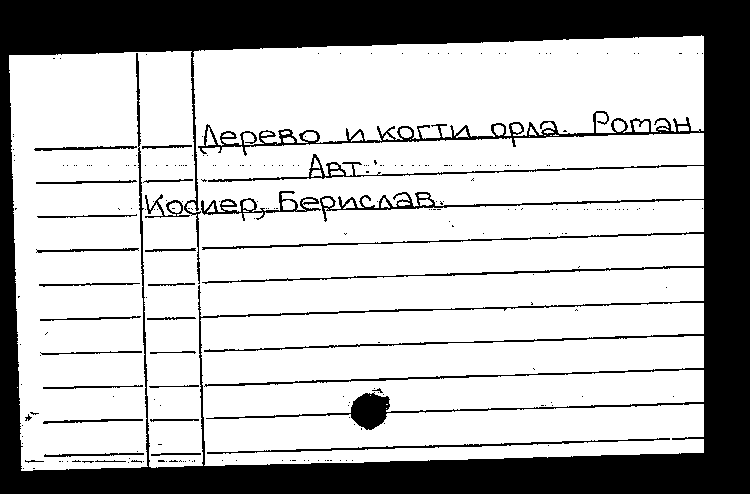 Дерево и когти орла. Роман.
Авт.:
Косиер, Берислав.